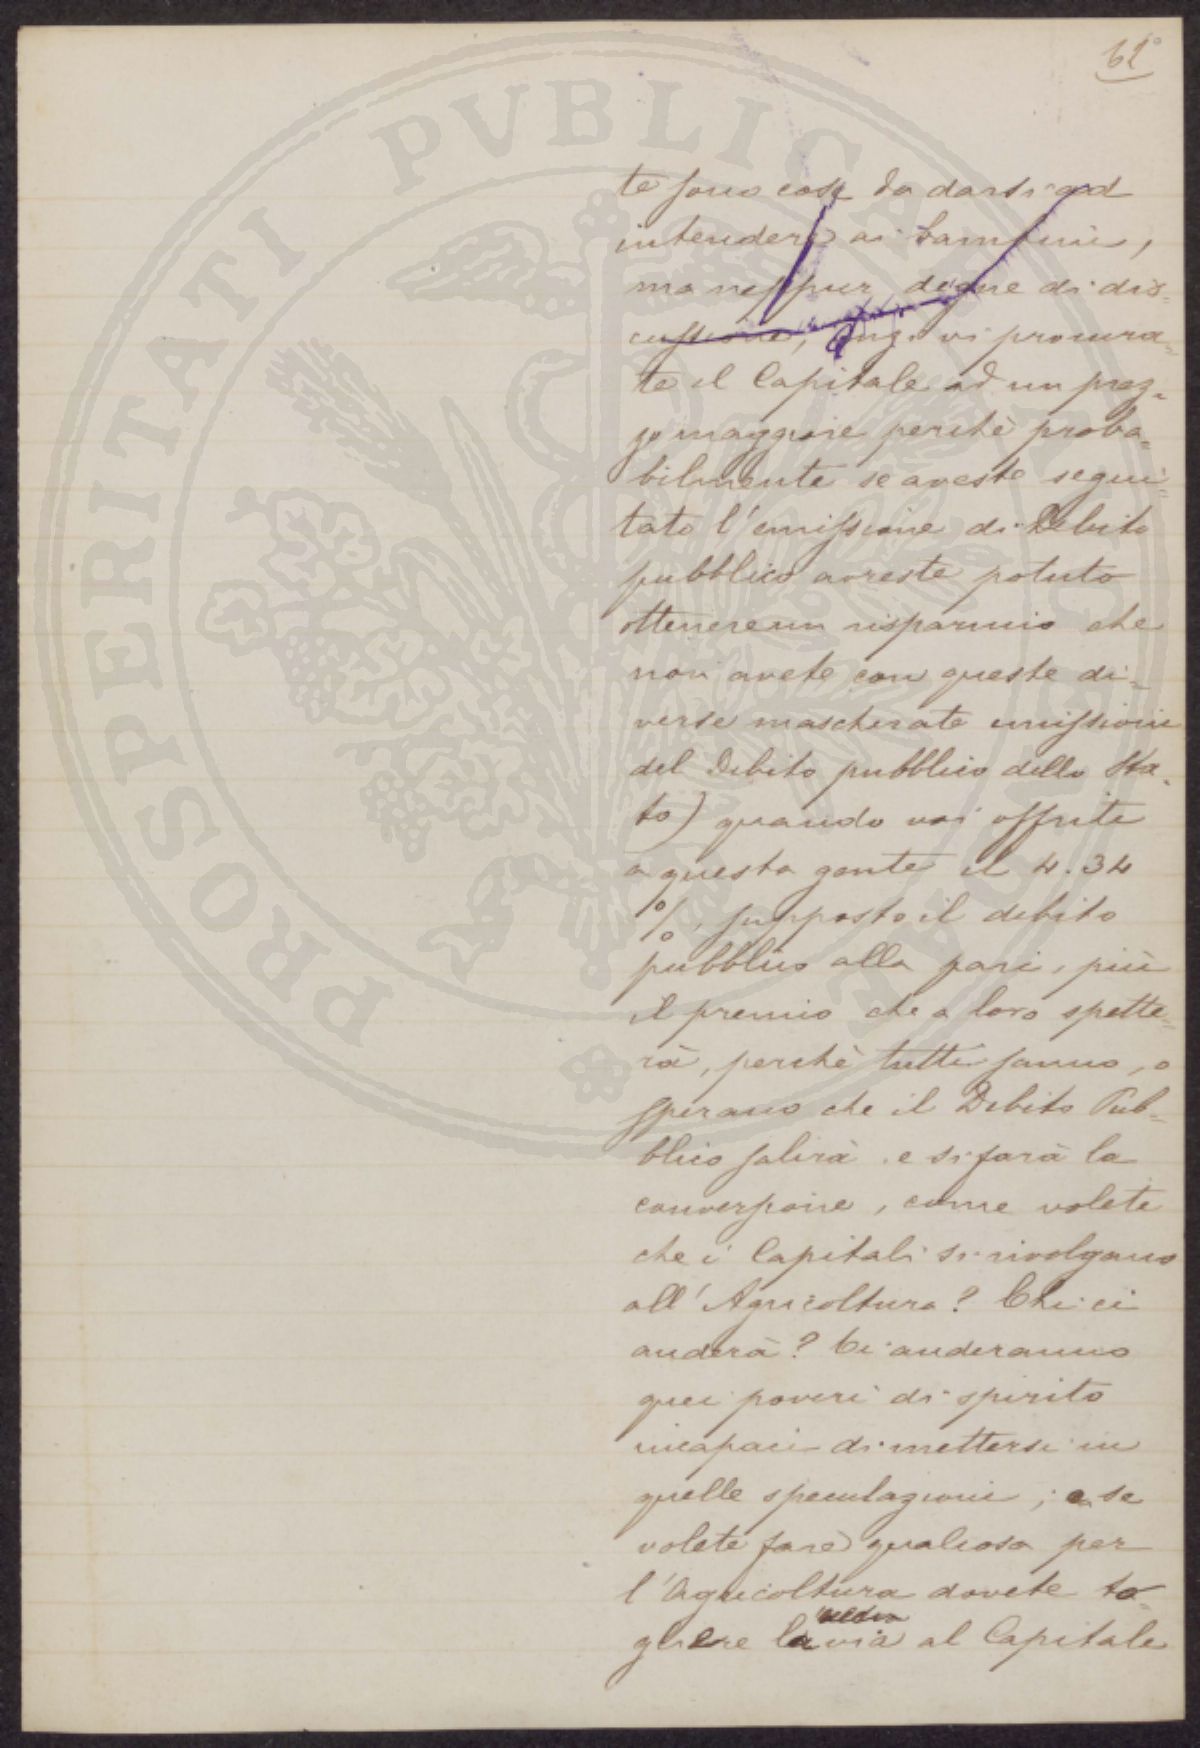 61°
te sono cose da darsi ad
intendere ai bambini,
ma neppur degne di dis-
cussione, Anzi vi procura-
te il Capitale ad un prez-
zo maggiore perchè proba-
bilmente se aveste segui-
tato l'emissione di Debito
pubblico avreste potuto
ottenere un risparmio che
non avete con queste di-
verse mascherate emissioni
del Debito pubblico dello Sta-
to) quando voi offrite
a questa gente il 4.34
%, supposto il debito
pubblico alla pari, più
il premio che a loro spette-
rà, perchè tutti sanno, o
sperano che il Debito Pub-
blico salirà e si farà la
conversione, come volete
che i Capitali si rivolgano
all'Agricoltura? Chi ci
anderà? Ci anderanno
quei poveri di spirito
incapaci di mettersi in
quelle speculazioni; e se
volete fare qualcosa per
l'Agricoltura dovete to-
gliere la via al Capitale
PROSPERITATI PVBLICAE